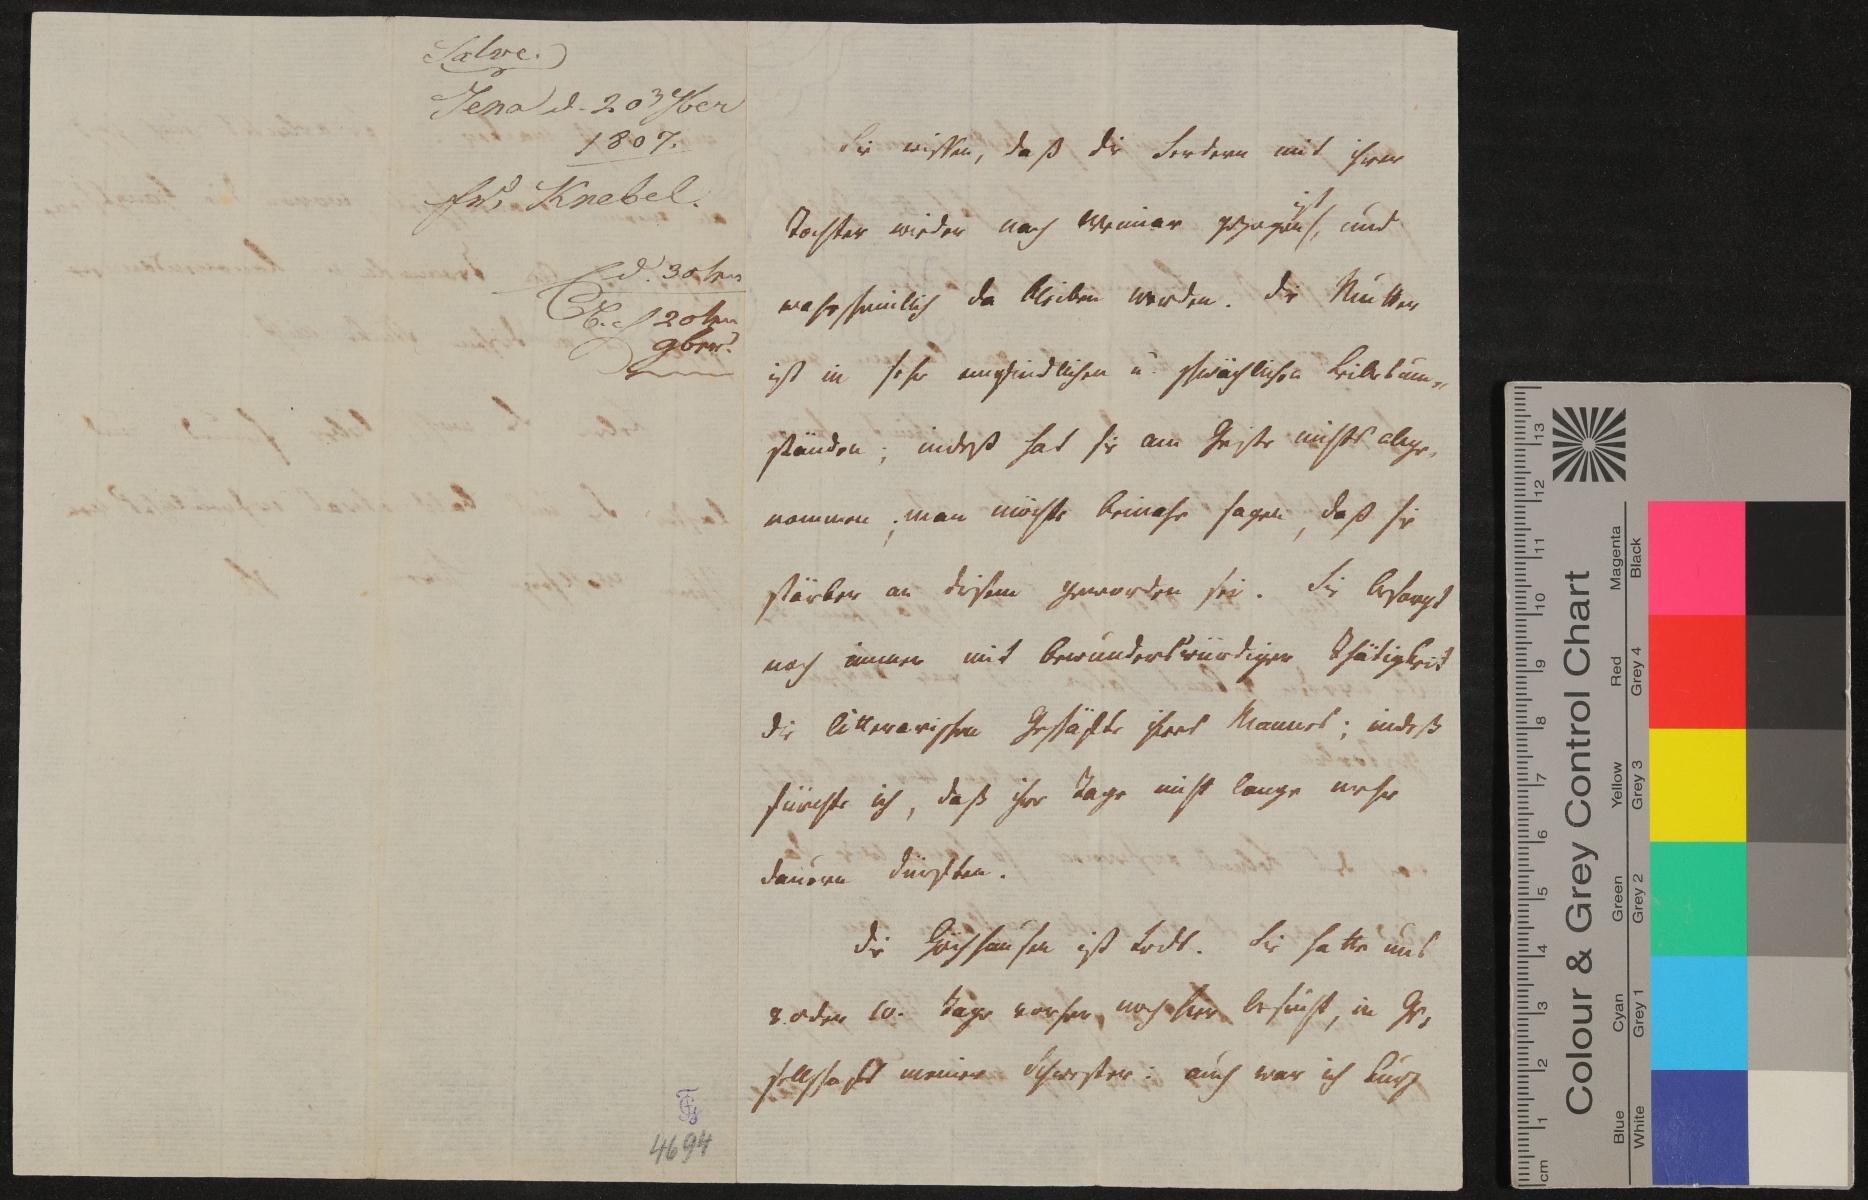 Salve.
Jena d. 20 7ber
1807.
Knebel.
d. 30ten
20ten
9ber.
4694
Sie wissen, daß die Herdern mit ihrer
Tochter wieder nach Weimar gezogen ist, und
wahrscheinlich da bleiben werden. Die Mutter
ist in sehr empfindlichen u. schwächlichen Leibesum-
ständen; indeß hat sie am Geiste nichts abge-
nommen; man möchte beinahe sagen, daß sie
stärker an diesem geworden sei. Sie besorgt
noch immer mit bewundertswürdiger Thätigkeit
die litterarischen Geschäfte ihres Mannes; indeß
fürchte ich, daß ihre Tage nicht lange mehr
dauern dürften.
Die Göchhausen ist todt. Sie hatte uns
8 oder 10. Tage vorher, noch hier besucht, in Ge-
sellschaft meiner Schwester: auch war ich kurz